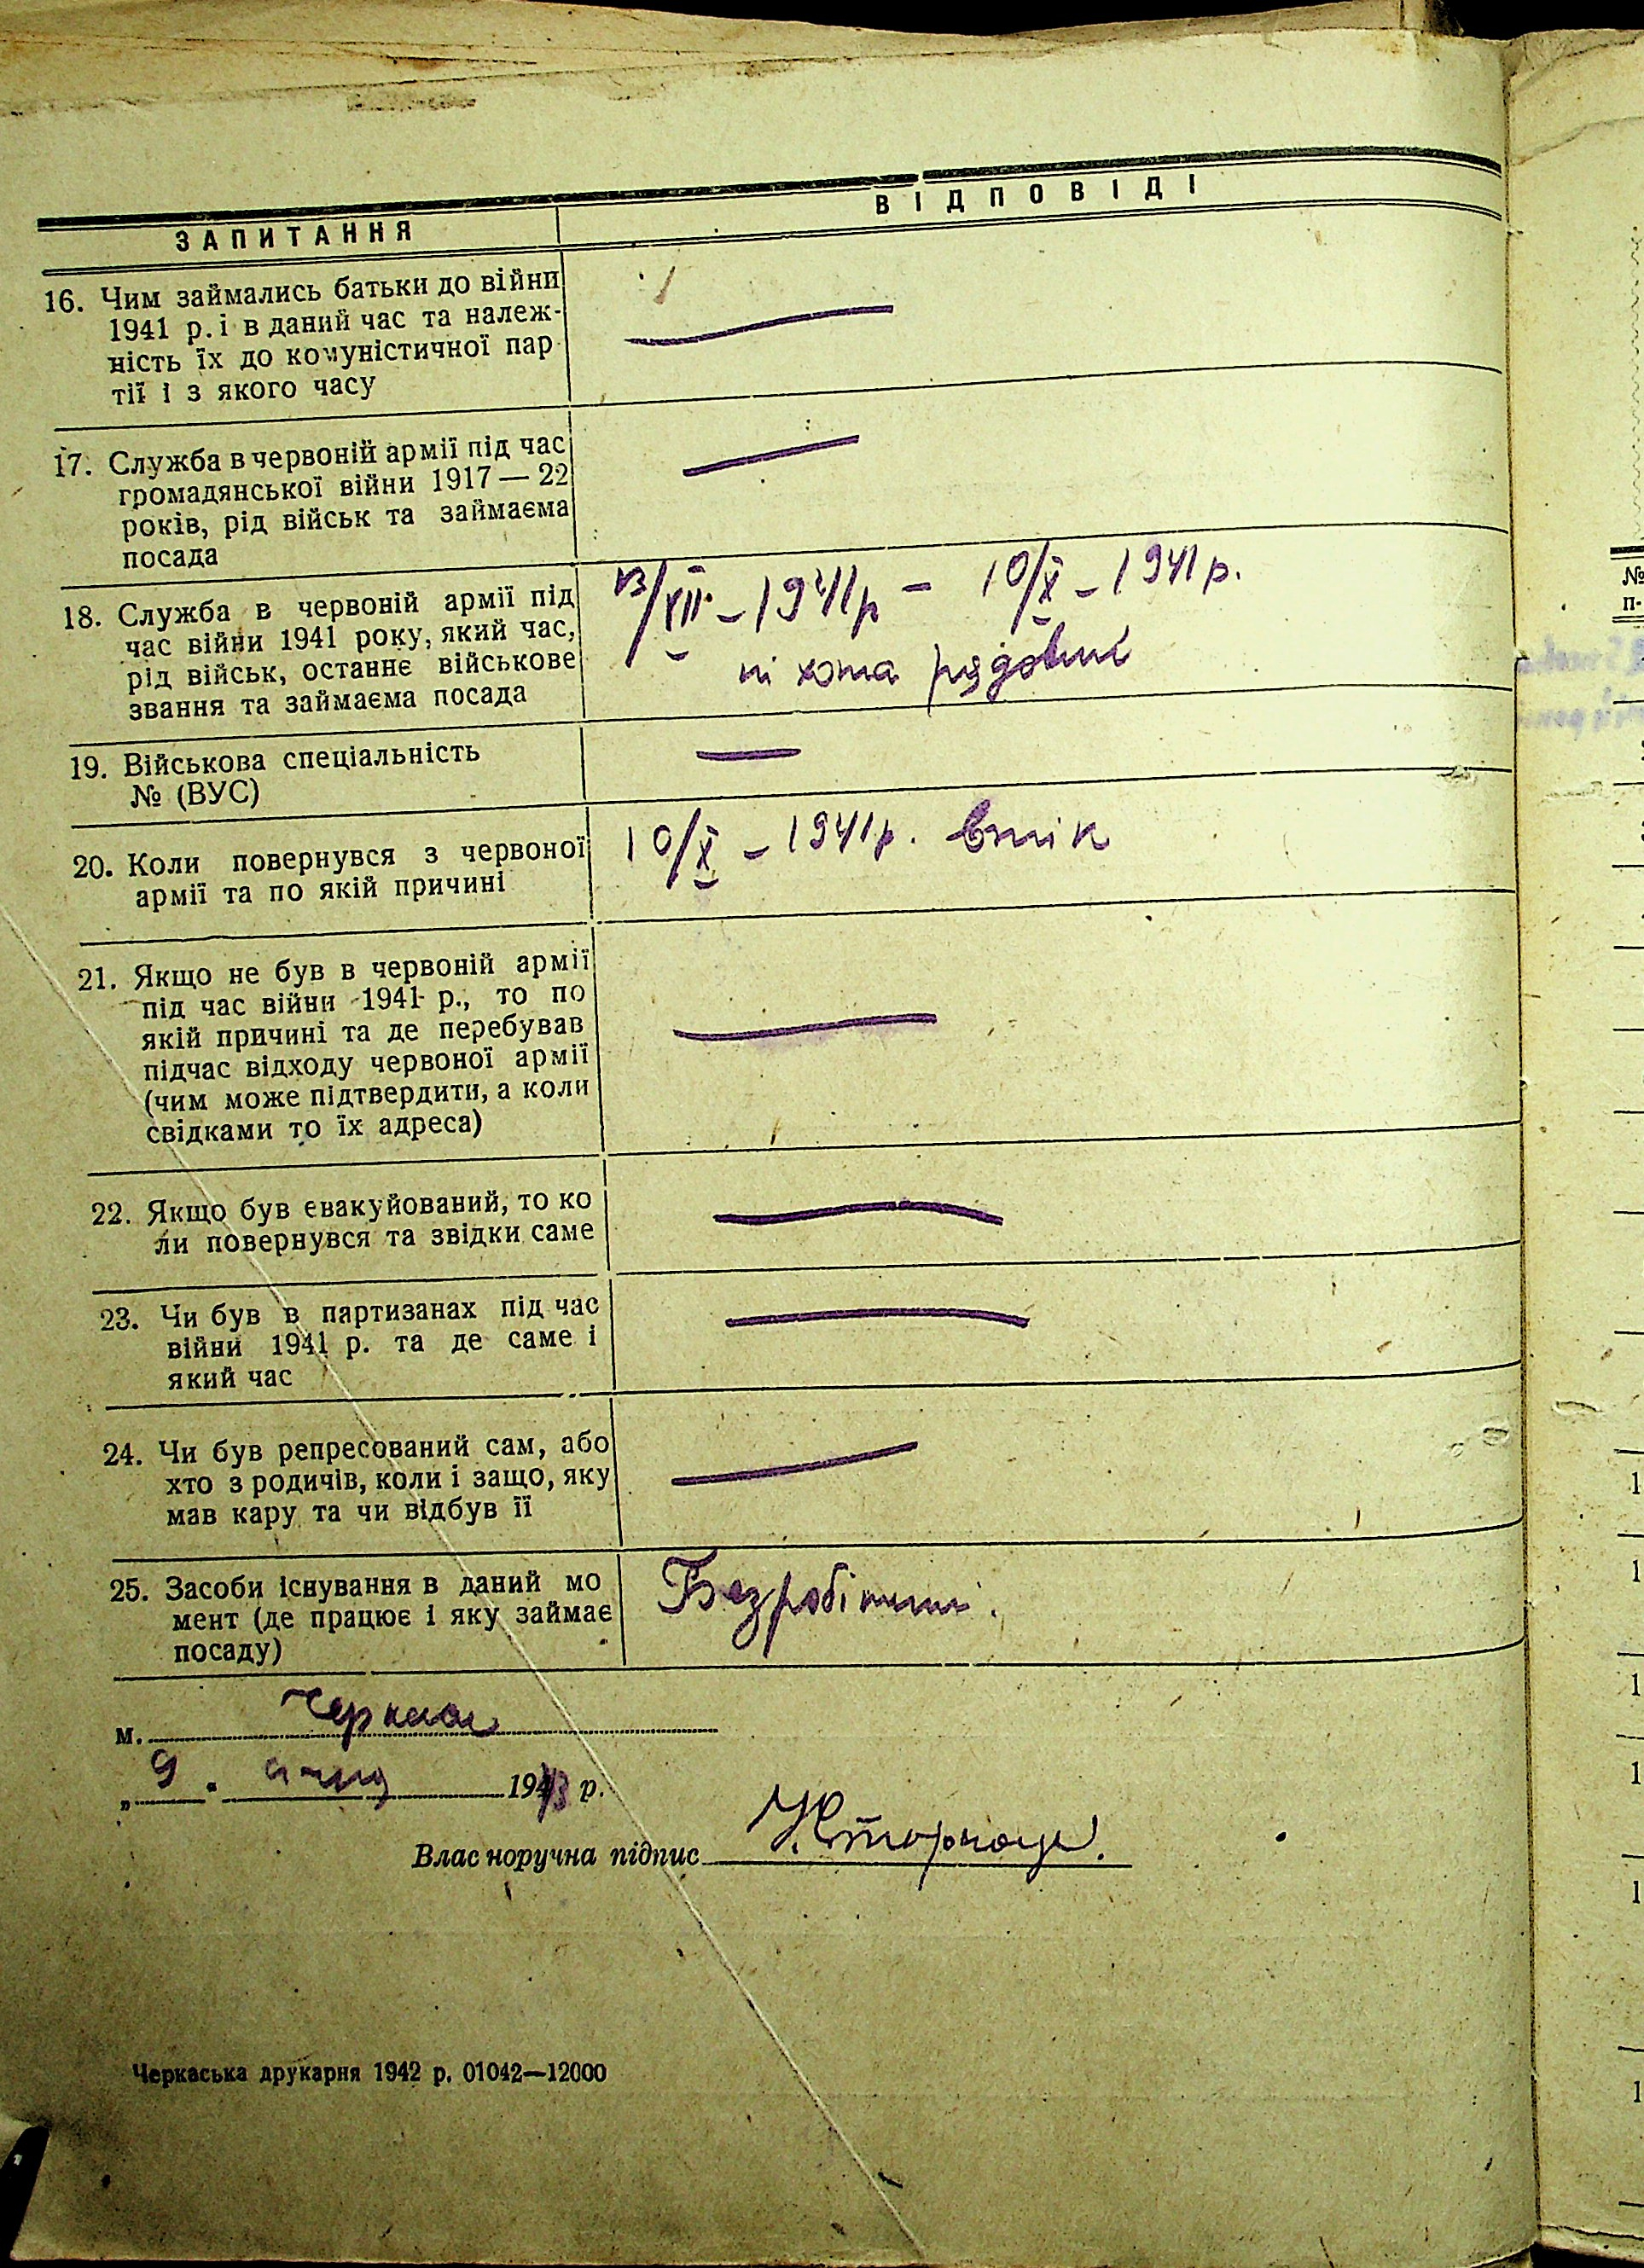 ЗАПИТАННЯ
ВІДПОВІДІ
16. Чим займались батьки до війни
1941 р. і в даний час та належ-
ність їх до комуністичної пар
тії і з якого часу
17. Служба в червоній армії під час
громадянської війни 1917 — 22
років, рід військ та займаєма
посада
18. Служба в червоній армії під
час війни 1941 року, який час,
рід військ, останнє військове
звання та займаєма посада
/VII – 1941 р – 10/X – 1941 р.
піхота рядовий
19. Військова спеціальність
№ (ВУС)
20. Коли повернувся з червоної
армії та по якій причині
10/X – 1941 р. втік
21. Якщо не був в червоній армії
під час війни 1941 р., то по
якій причині та де перебував
підчас відходу червоної армії
(чим може підтвердити, а коли
свідками то їх адреса)
22. Якщо був евакуйований, то ко
ли повернувся та звідки саме
23. Чи був в партизанах під час
війни 1941 р. та де саме і
який час
24. Чи був репресований сам, або
хто з родичів, коли і защо, яку
мав кару та чи відбув її
25. Засоби існування в даний мо
мент (де працює і яку займає
посаду)
Безробітний.
м. Черкаси
„ 9 . січня 1943 р.
Власноручна підпис
Черкаська друкарня 1942 р. 01042—12000
№
п.